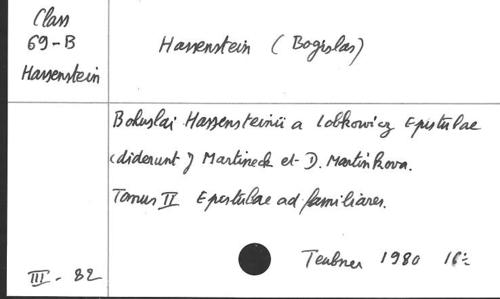 Class
69-B
Hassenstein
Hassenstein (Bogislas)
Bohuslai Hassensteinii a Lobkowicz Epistulae
(diderunt J Martinek et D. Martinkova.
Tomus II Epistulae ad familiares.
Teubner 1980 16=
III - 82